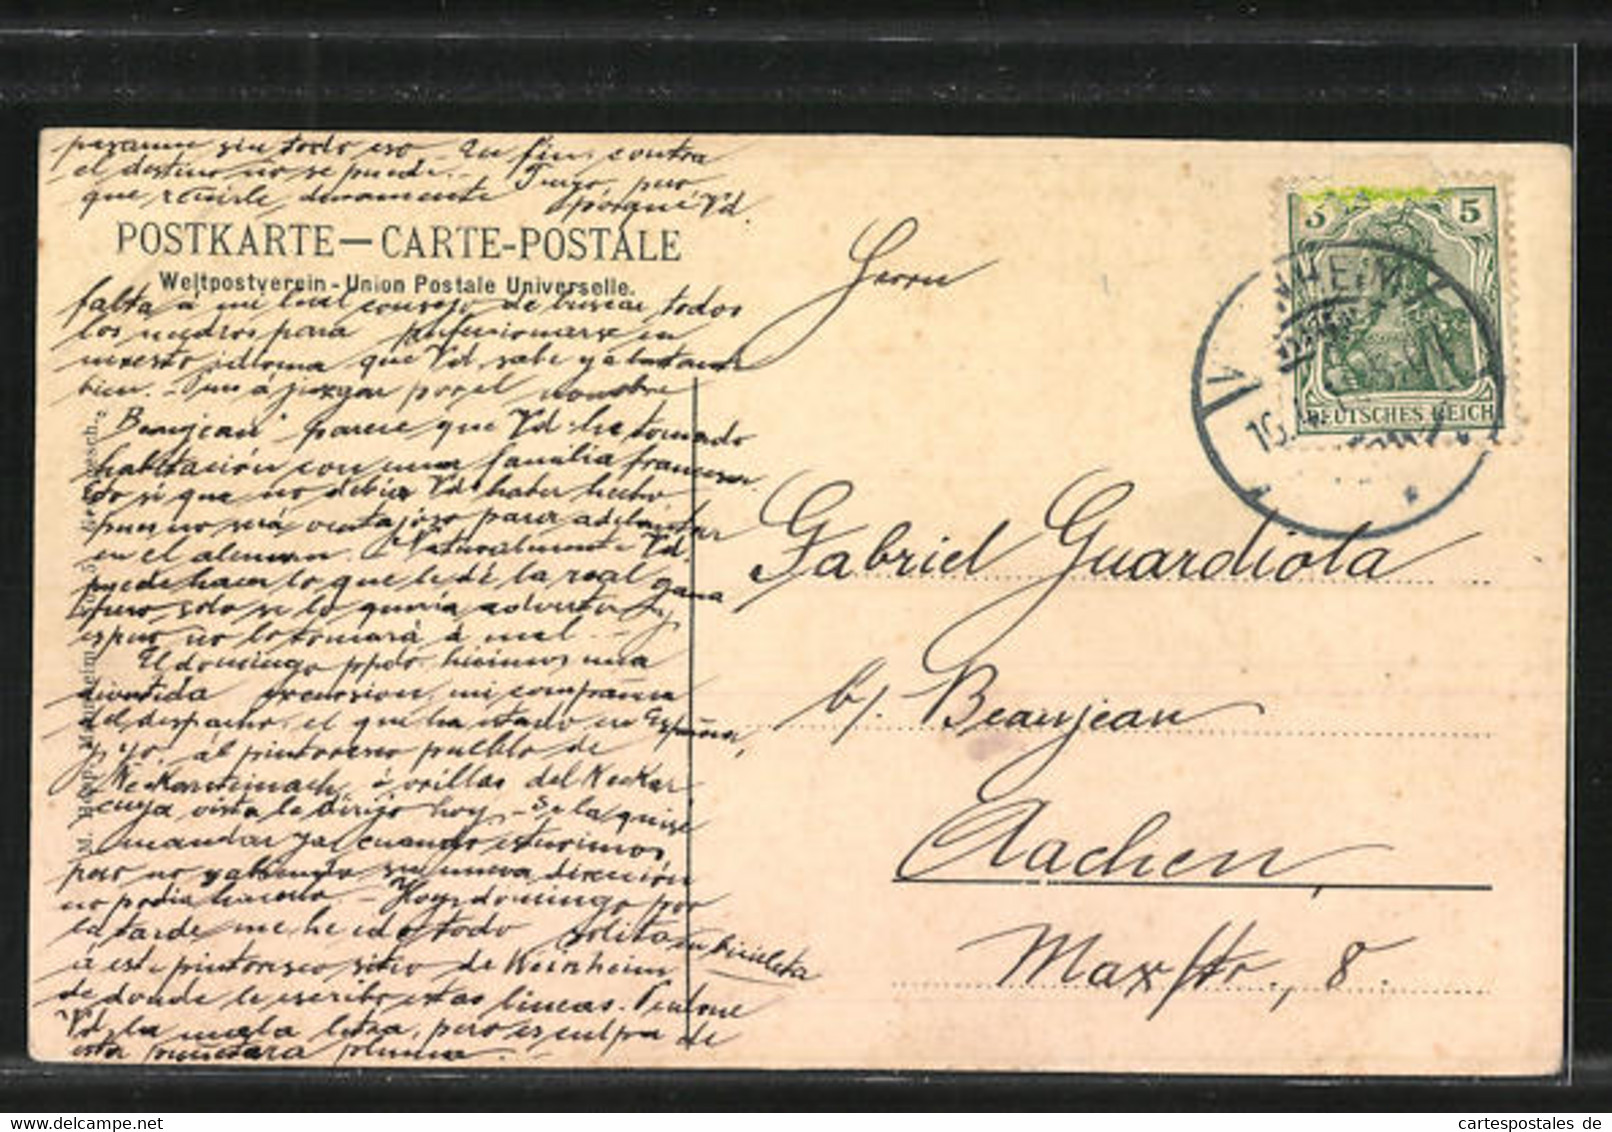 sin todo eso. En fin, contra
el destino no se puede.- Tengo, pero
que reñirle duramente porqué Vd.
POSTKARTE — CARTE-POSTALE
Weltpostverein - Union Postale Universelle.
falta á mi leal consejo de buscar todos
los medios para perfeccionarse en
nuestro idioma que Vd. sabe ya bastante
bien. - Pues á juzgar por el nombre
"Beaujean" parece que Vd. ha tomado
habitación con una familia francesa.
Eso si que no debia Vd. haber hecho
pues no será ventajoso para adelantar
en el aleman. Naturalmente Vd.
puede hacer lo que le dé la real gana
pero solo se lo queria advertir y
espero no lo tomará á mal. -
El domingo ppdo. hicimos una
divertida excursion, mi compañero
del despacho, el que ha estado en España,
y yo, al pintoresco pueblo de
Neckarsteinach, á orillas del Neckar
cuya vista le dirijo hoy. - Se la quise
mandar ya cuando estuvimos,
pero no sabiendo su nueva dirección
no podia hacerlo. - Hoy, domingo por
la tarde me he ido todo solito en bicicleta
á este pintoresco sitio de Weinheim
de donde le escribo estas lineas. Perdone
Vd. la mala letra, pero es culpa de
esta pluma.
Herrn
Gabriel Guardiola
b/. Beaujean
Aachen,
Maxstr., 8.
5 5
DEUTSCHES REICH
NHEIM
1
16.
cartespostales de